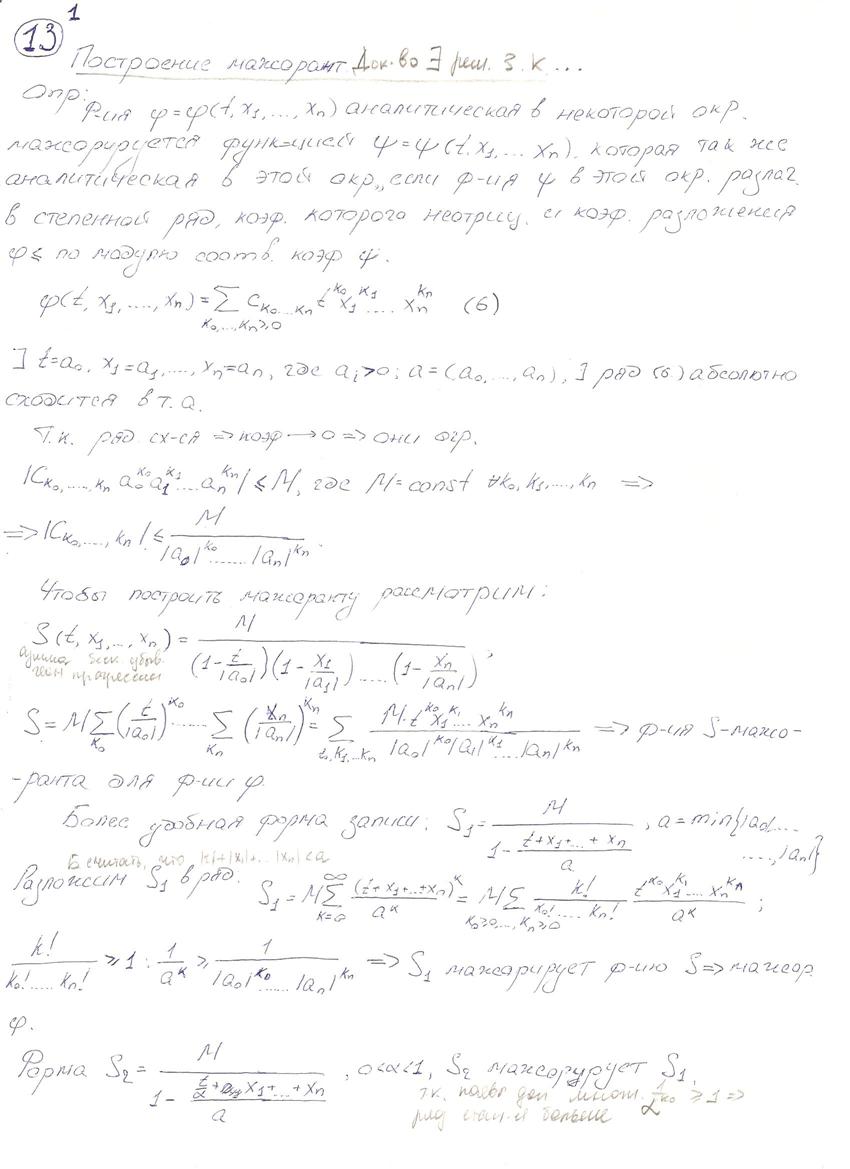 13 1
Построение мажорант Док-во ∃ реш. З. К ...
Опр: Ф-ия φ=φ(t, x₁, ..., xₙ) аналитическая в некоторой окр.
мажорируется функцией ψ=ψ(t, x₁, ... xₙ), которая так же
аналитическая в этой окр., если ф-ия ψ в этой окр. разлаг.
в степенной ряд, коэф. которого неотриц. и коэф. разложения
φ ≤ по модулю соотв. коэф ψ.
φ(t, x₁, ..., xₙ) = ∑_{k₀,...,kₙ≥0} C_{k₀...kₙ} t^{k₀} x₁^{k₁} .... xₙ^{kₙ} (6)
] t=a₀, x₁=a₁, ..., xₙ=aₙ, где aᵢ>0; a=(a₀, ..., aₙ), ] ряд (6) абсолютно
сходится в т. a.
Т.к. ряд сх-ся ⇒ коэф → 0 ⇒ они огр.
|C_{k₀,...,kₙ} a₀^{k₀} a₁^{k₁} ... aₙ^{kₙ}| ≤ M, где M = const ∀k₀, k₁, ..., kₙ ⇒
⇒ |C_{k₀,...,kₙ}| ≤ M / (|a₀|^{k₀} ...... |aₙ|^{kₙ}).
Чтобы построить мажоранту рассмотрим:
S(t, x₁, ..., xₙ) = M / ((1 - t/|a₀|)(1 - x₁/|a₁|) ..... (1 - xₙ/|aₙ|)),
сумма беск. убыв.
геом прогрессии
S = M ∑_{k₀} (t/|a₀|)^{k₀} ...... ∑_{kₙ} (xₙ/|aₙ|)^{kₙ} = ∑_{t, k₁,...kₙ} M·t^{k₀} x₁^{k₁} ... xₙ^{kₙ} / (|a₀|^{k₀} |a₁|^{k₁} ... |aₙ|^{kₙ}) ⇒ ф-ия S-мажо-
-ранта для ф-ии φ.
Более удобная форма записи: S₁ = M / (1 - (t+x₁+...+xₙ)/a), a = min{|a₀|... ..., |aₙ|}
считать, что |t|+|x₁|+...|xₙ|<a
Разложим S₁ в ряд. S₁ = M ∑_{k=0}^{∞} (t+x₁+...+xₙ)^k / a^k = M ∑_{k₀≥0,..., kₙ≥0} k! / (k₀! .... kₙ!) · t^{k₀} x₁^{k₁} ... xₙ^{kₙ} / a^k ;
k! / (k₀! .... kₙ!) ≥ 1 : 1/a^k ≥ 1 / (|a₀|^{k₀} ...... |aₙ|^{kₙ}) ⇒ S₁ мажорирует ф-ию S ⇒ мажор.
φ.
Форма S₂ = M / (1 - (t/α + x₁+...+xₙ)/a), 0<α<1, S₂ мажорирует S₁.
т.к. доп множ. 1/α^{k₀} ≥ 1 ⇒
ряд больше